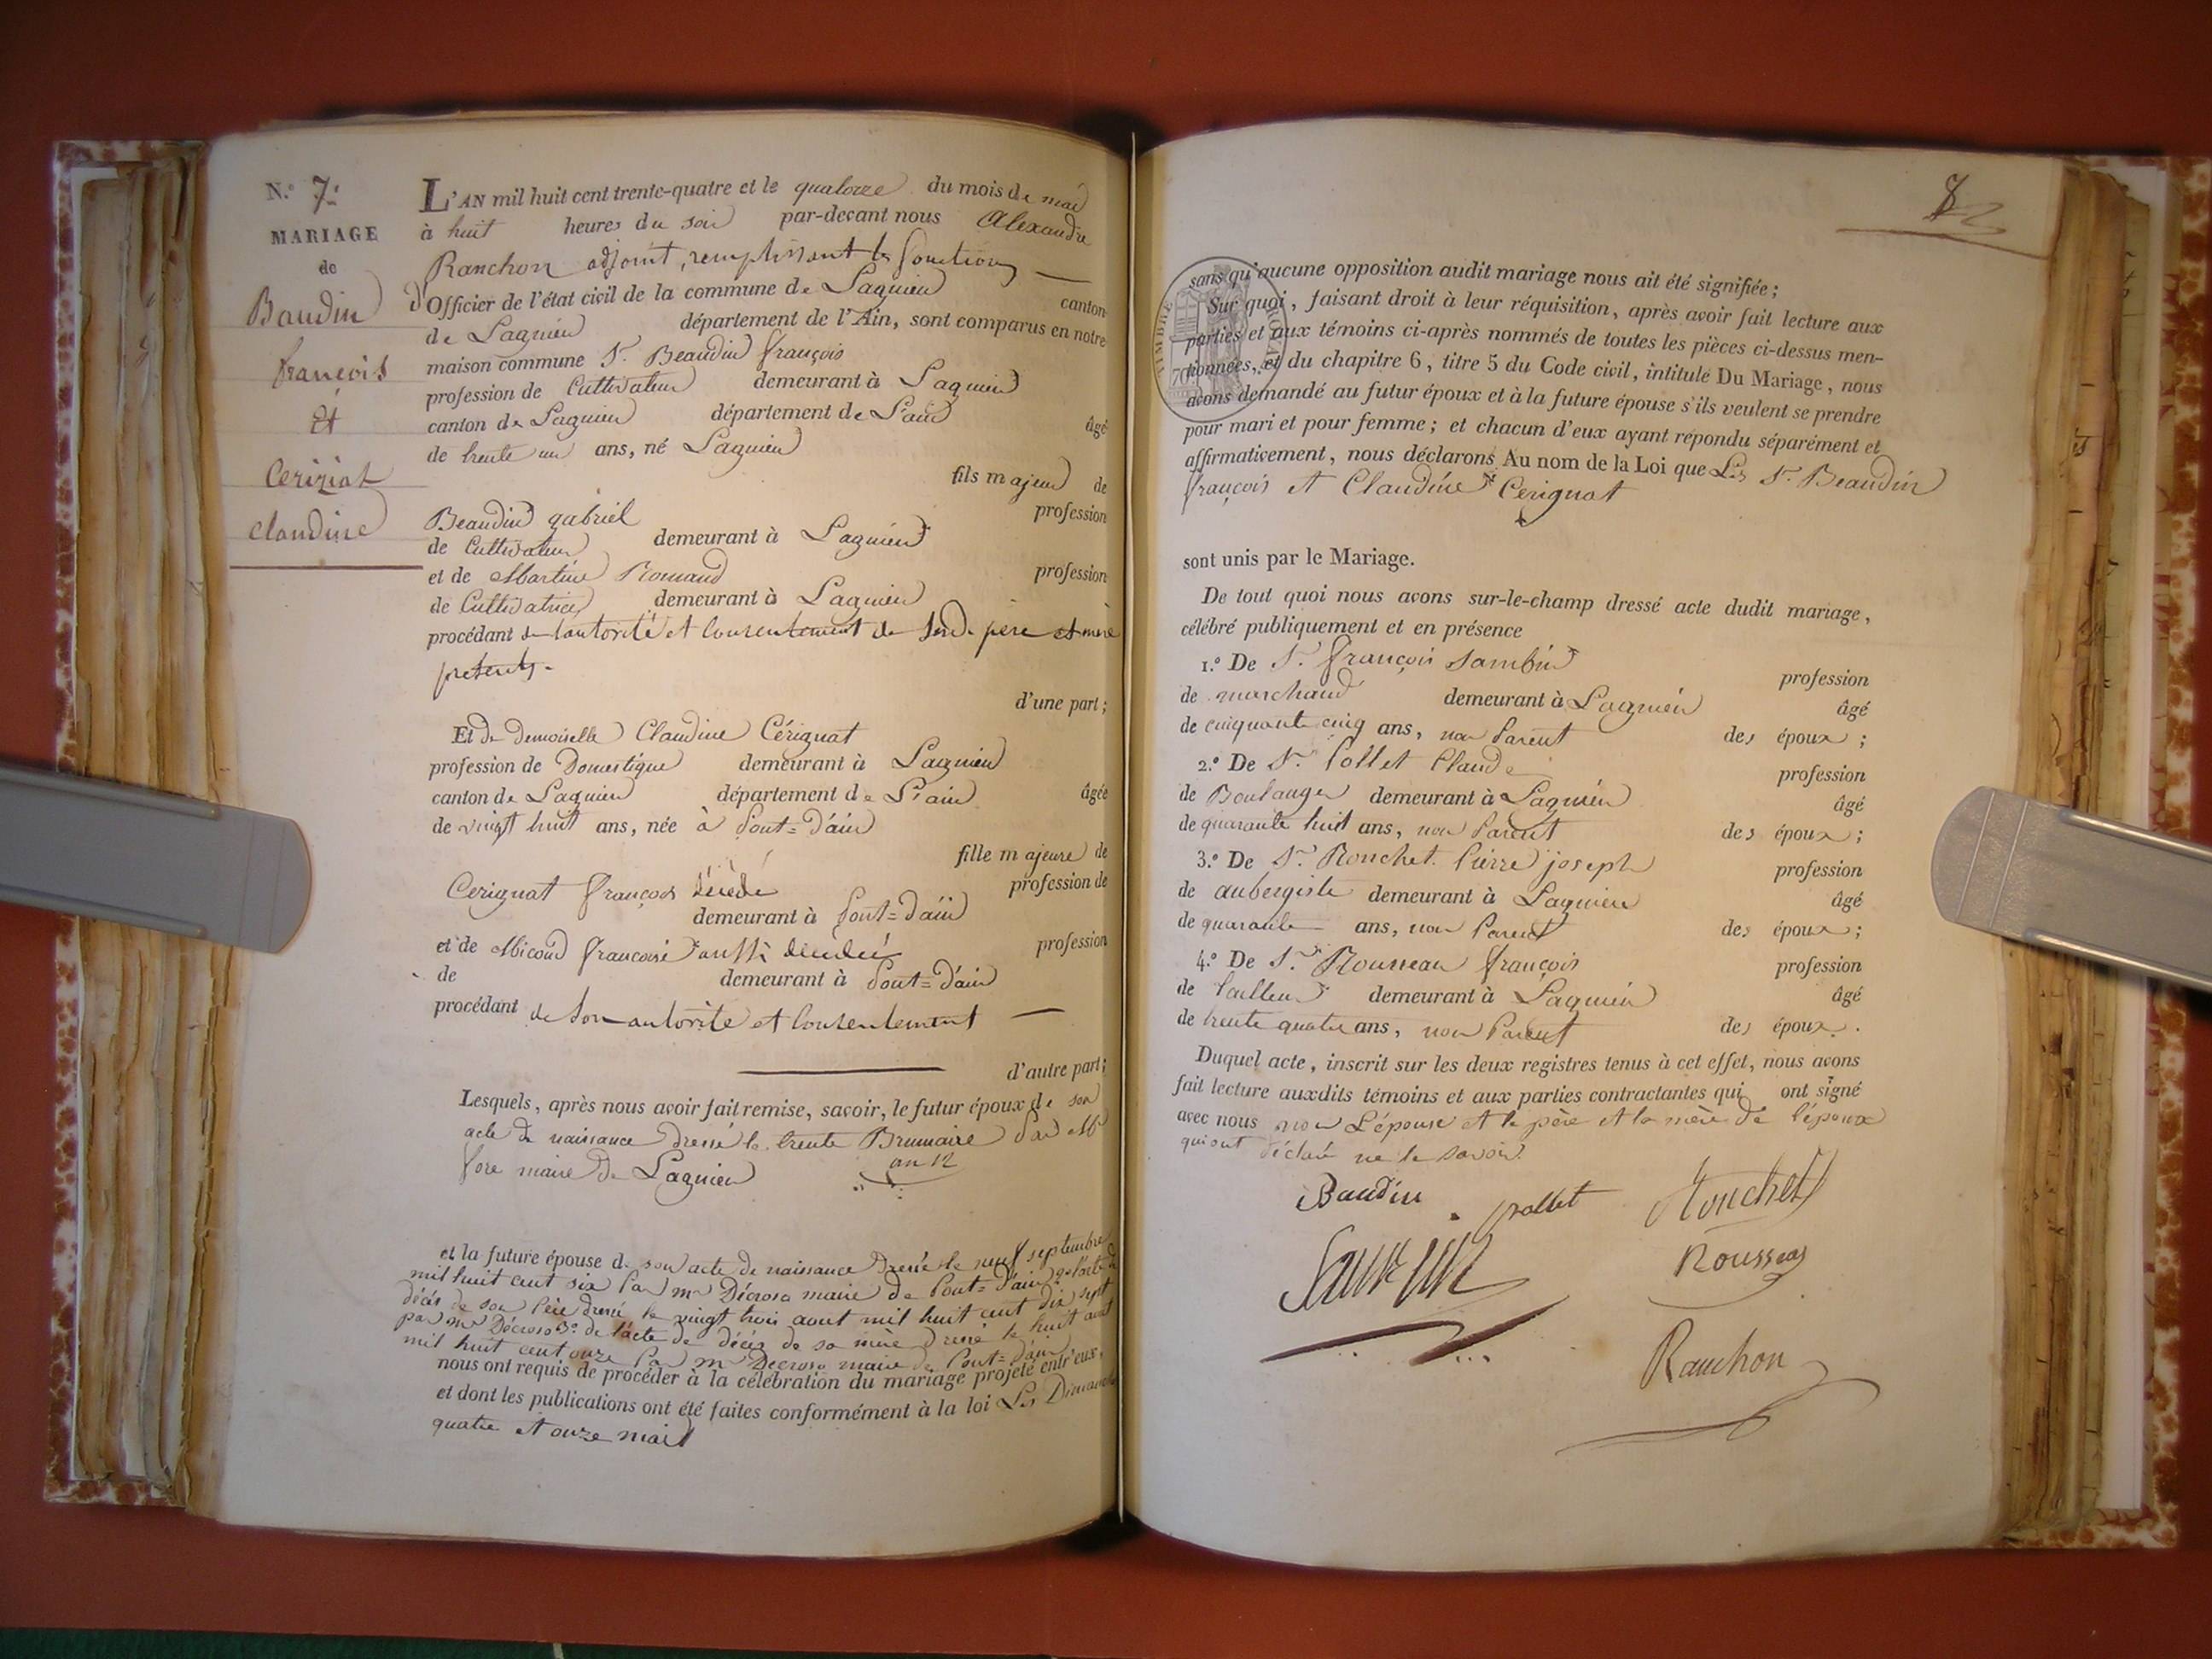 N.° 7.
MARIAGE
de
Baudin
françois
Et
Ceriziat
claudine
L'AN mil huit cent trente-quatre et le quatorze du mois de mai
à huit heures du soir par-devant nous Alexandre
Ranchon adjoint, remplissant les fonctions
d'Officier de l'état civil de la commune de Lagnieu canton
de Lagnieu département de l'Ain, sont comparus en notre
maison commune Sr. Beaudin françois
profession de Cultivateur demeurant à Lagnieu
canton de Lagnieu département de L'ain âgé
de trente un ans, né Lagnieu
fils majeur de
Beaudin gabriel profession
de Cultivateur demeurant à Lagnieu
et de Martine Romand profession
de Cultivatrice demeurant à Lagnieu
procédant de l'autorité et Consentement de père et mère
présents.
d'une part;
Et de demoiselle Claudine Cérignat
profession de Domestique demeurant à Lagnieu
canton de Lagnieu département de L'ain âgée
de vingt huit ans, née à Pont=d'ain
fille majeure de
Cerignat françois décédé profession de
demeurant à Pont=d'ain
et de Micoud francoise aussi décédée profession
de demeurant à Pont=d'ain
procédant de son autorité et Consentement
d'autre part;
Lesquels, après nous avoir fait remise, savoir, le futur époux de son
acte de naissance dressé le trente Brumaire an 12 par Mr
fore maire de Lagnieu
et la future épouse de son acte de naissance dressé le neuf septembre
mil huit cent six Par mr Décroso maire de Pont=d'ain 2° l'acte de
décès de son Père dressé le vingt trois aout mil huit cent dix sept
par mr Décroso 3° de l'acte de décès de sa mère dressé le huit aout
mil huit cent onze Par mr Decroso maire de Pont=d'ain
nous ont requis de procéder à la célébration du mariage projeté entr'eux,
et dont les publications ont été faites conformément à la loi Les Dimanche
quatre et onze mai
sans qu'aucune opposition audit mariage nous ait été signifiée;
Sur quoi, faisant droit à leur réquisition, après avoir fait lecture aux
parties et aux témoins ci-après nommés de toutes les pièces ci-dessus men-
tionnées, et du chapitre 6, titre 5 du Code civil, intitulé Du Mariage, nous
avons demandé au futur époux et à la future épouse s'ils veulent se prendre
pour mari et pour femme; et chacun d'eux ayant répondu séparément et
affirmativement, nous déclarons Au nom de la Loi que Les Sr. Beaudin
françois et Claudine Cerignat
sont unis par le Mariage.
De tout quoi nous avons sur-le-champ dressé acte dudit mariage,
célébré publiquement et en présence
1.° De Sr. françois Sambin profession
de marchand demeurant à Lagnieu âgé
de cinquante cinq ans, non Parent des époux;
2.° De Sr. Pollet Claude profession
de Boulanger demeurant à Lagnieu âgé
de quarante huit ans, non Parent des époux;
3.° De Sr. Ronchet Pierre joseph profession
de aubergiste demeurant à Lagnieu âgé
de quarante ans, non Parent des époux;
4.° De Sr. Rousseau françois profession
de tailleur demeurant à Lagnieu âgé
de trente quatre ans, non Parent des époux.
Duquel acte, inscrit sur les deux registres tenus à cet effet, nous avons
fait lecture auxdits témoins et aux parties contractantes qui ont signé
avec nous non L'épouse et le père et la mère de l'époux
qui ont déclaré ne le savoir.
Baudin pollet Ronchet
Rousseau
Ranchon